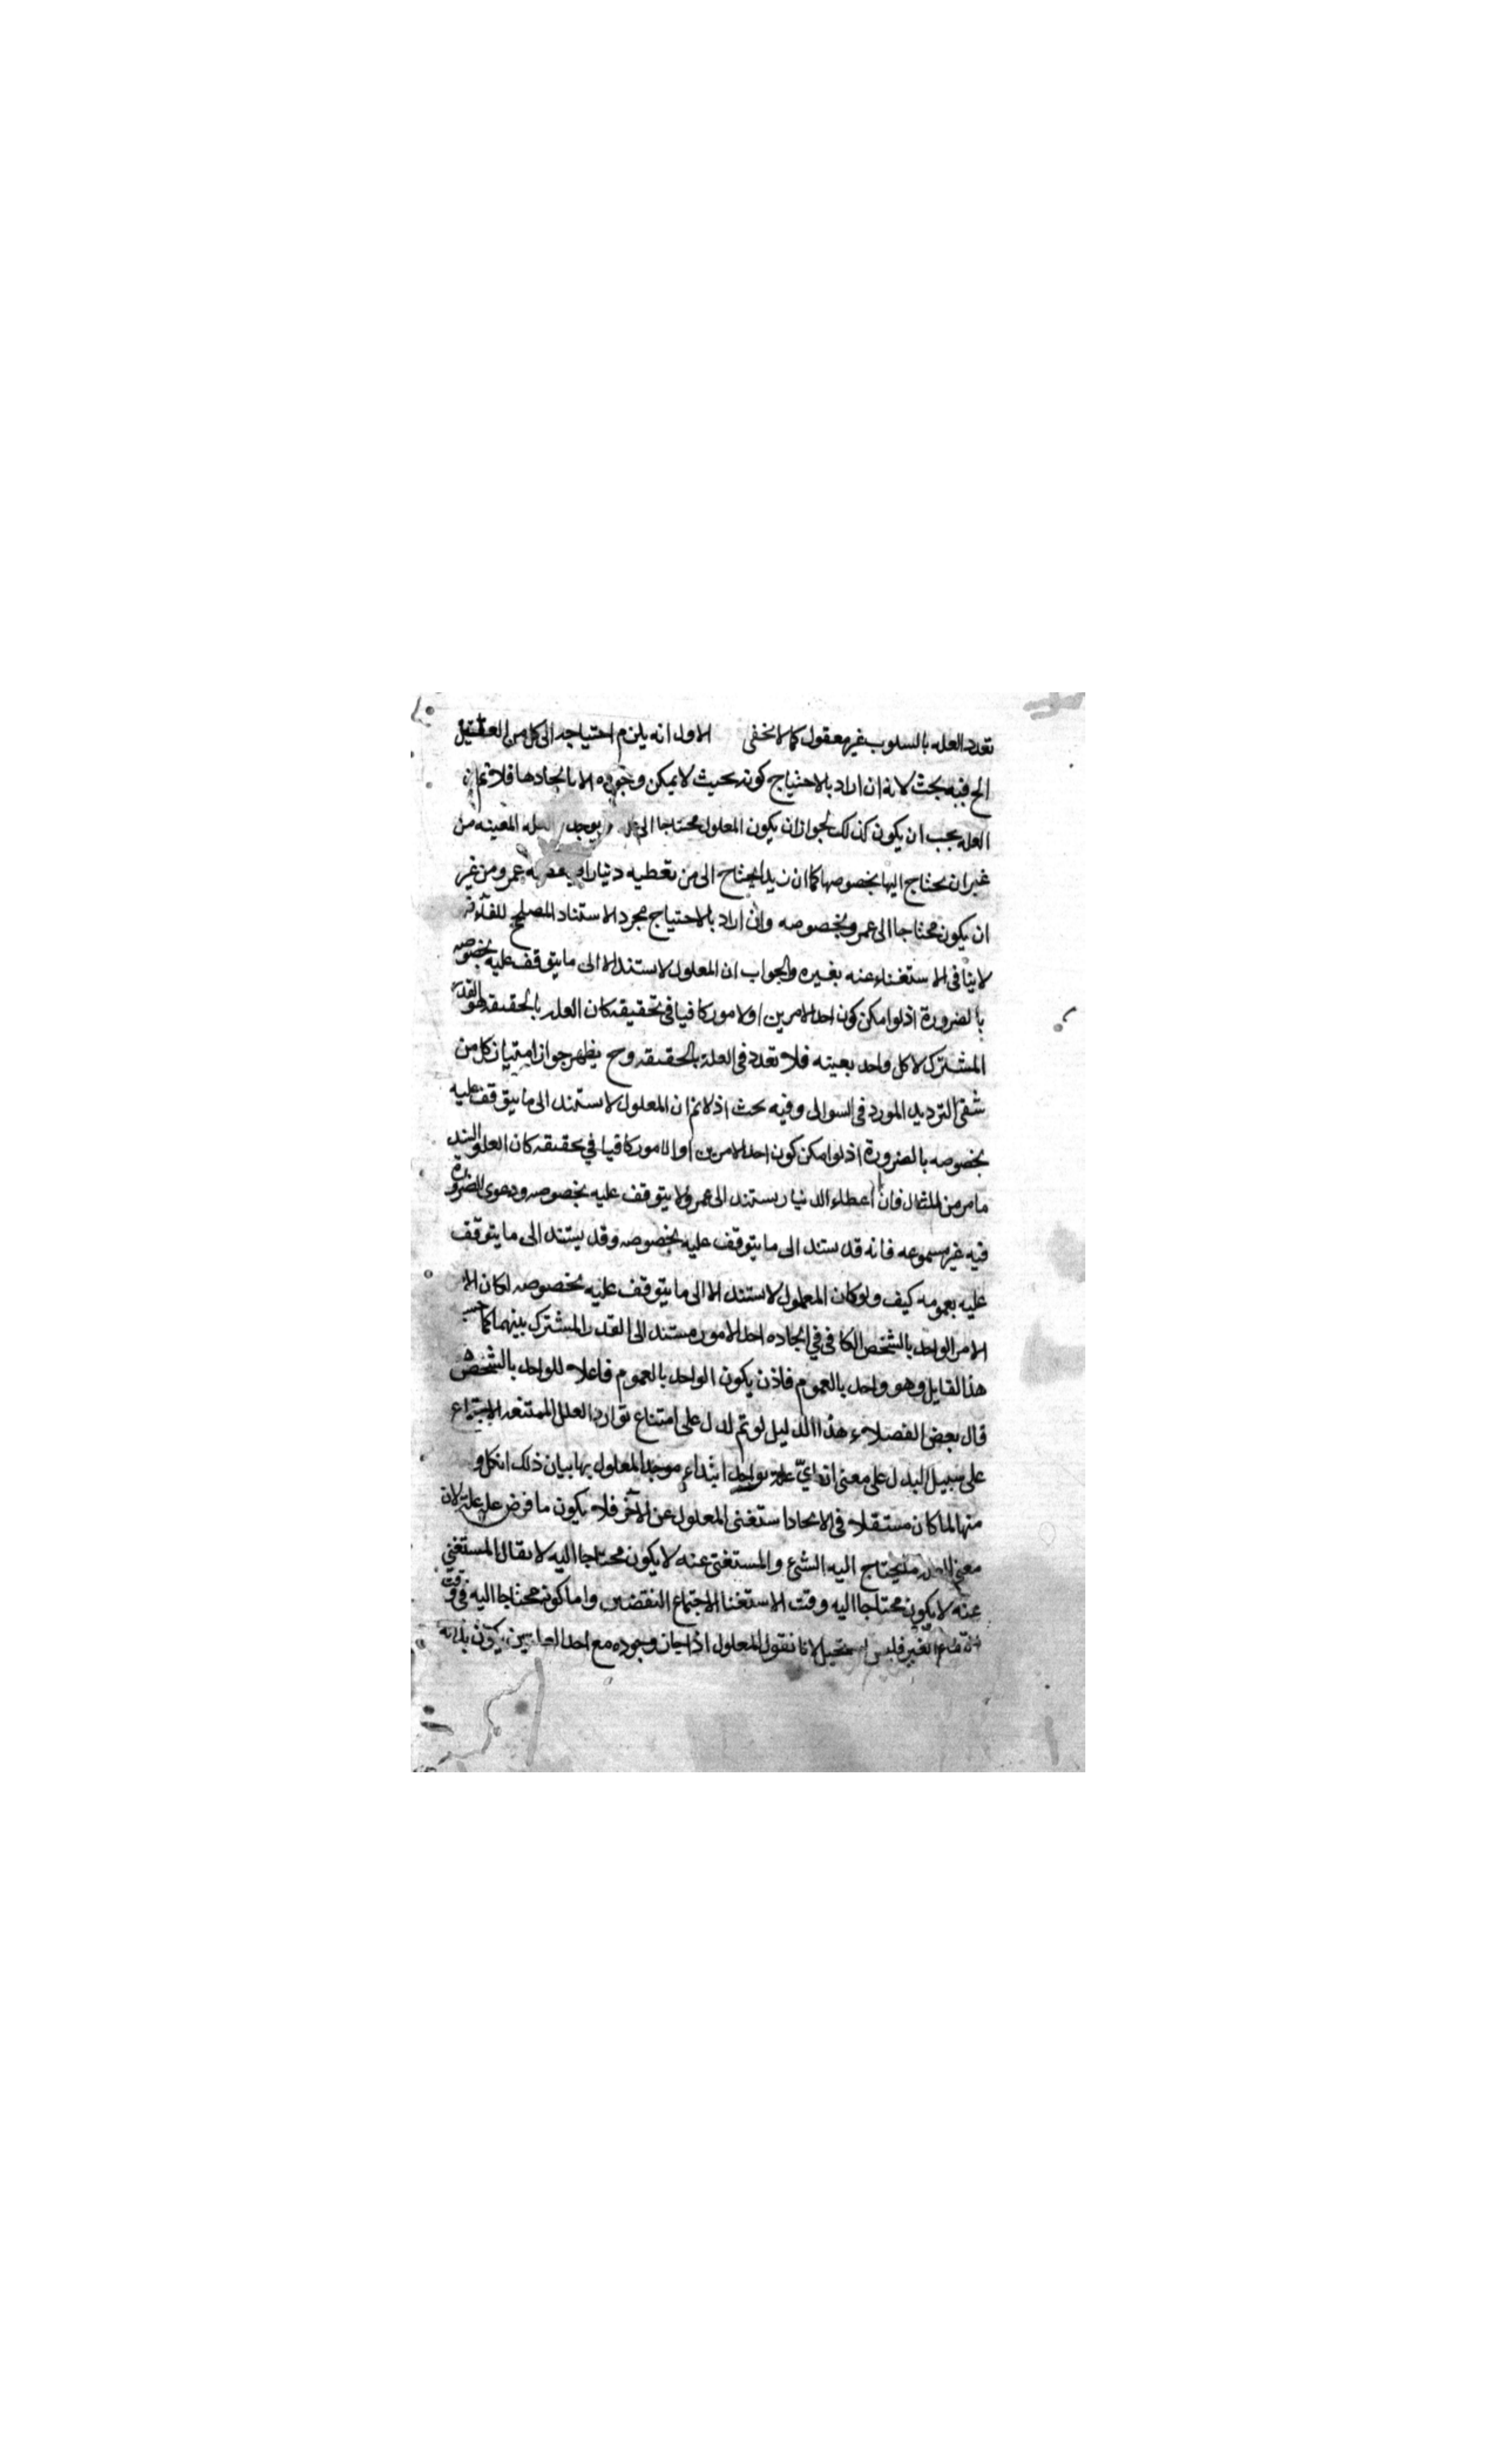 تعدد العله بالسلوب غير معقول كما لا يخفى الاول انه يلزم احتياجه الى كل من
الخ فيه بحث لانه ان اراد بالاحتياج كونه بحيث لا يمكن وجوده الا بايجادها فلانم ان
العله يجب ان يكون كذلك لجواز ان يكون المعلول محتاجا الى يوجد العله المعينه من
غير ان يحتاج اليها بخصوصها كما ان زيدا يحتاج الى من يعطيه دنيارا عمرو من غير
ان يكون محتاجا الى عمرو بخصوصه وان اراد بالاحتياج مجرد الاستناد المصلح للفاء فـ
لاينافى الاستغناء عنه بغيره والجواب ان المعلول لا يستند الا الى ما يتوقف عليه بخصوصه
بالضرورة اذ لو امكن كون احد الامرين او الامور كافيا فى تحقيقه كان العله بالحقيقه هو القدر
المشترك لا كل واحد بعينه فلا تعدد فى العلة بالحقيقه وح يظهر جواز كل من
شقى الترديد المورد فى السوال وفيه بحث اذ لانم ان المعلول لا يستند الى ما يتوقف عليه
بخصوصه بالضرورة اذ لو امكن كون احد الامرين او الامور كافيا في تحقيقه كان العله
ما مر من المثال فان اعطاء الدنيار يستند الى عمرو ولا يتوقف عليه بخصوصه ودعوى الضرورة
فيه غير مسموعه فانه قد يستند الى ما يتوقف عليه بخصوصه وقد يستند الى ما يتوقف
عليه بعمومه كيف ولو كان المعلول لا يستند الا الى ما يتوقف عليه بخصوصه لكان الا
الامر الواحد بالشخص الكافى في ايجاده احد الامور مستند الى القدر المشترك بينهما كما حسبه
هذا القايل وهو واحد بالعموم فاذن يكون الواحد بالعموم فاعلا للواحد بالشخص
قال بعض الفضلاء هذا الدليل لو تم لدل على امتناع توارد العلل الممتنعه الاجتماع
على سبيل البدل على معنى انه اىّ علة ابتداء موجد المعلول بها بيان ذلك ان كل و
منها لما كان مستقلا فى الايجاد استغنى المعلول عن الآخر فلا يكون ما فرض عله علة لان
معنى العله ما يحتاج اليه الشئ والمستغنى عنه لا يكون محتاجا اليه لا يقال المستغنى
عنه لا يكون محتاجا اليه وقت الاستغنا لاجتماع النقضين واما كونه محتاجا اليه فى وقت
الغير فليس بمستحيل لانا نقول المعلول اذا جاز وجوده مع احد العلتين